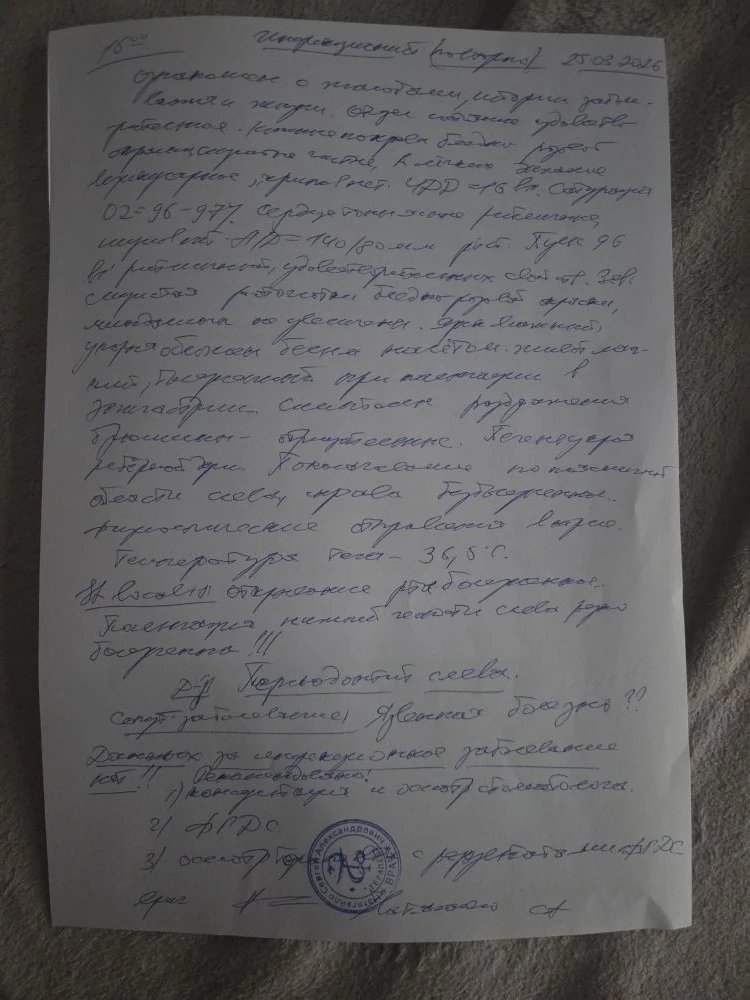 15⁰⁰ Инфекционист (повторно) 25.03.2026
Ознакомлен с жалобами, истории забол-
вания и жизни. Общее состояние удовлет-
рительное. Кожные покровы бледно розовой
окраски, чистые, в легких дыхание
везикулярное, хрипов нет. ЧДД = 16 в1. Сатурация
O2=96-97%. Сердце тоны ясно ритмичные,
шумов нет. АД=140/80 мм рт. Пульс 96
в1' ритмичный, удовлетворительных свойств. Зев.
слизистая ротоглотки бледно розовой окраски,
миндалины не увеличены. Язык влажный,
у корня обложен налетом. Живот мяг-
кий, болезненный при пальпации в
эпигастрии. Симптомы раздражения
брюшины - отрицательные. Печень у края
реберной дуги. Поколачивание по поясничной
области слева, справа безболезненное.
Физиологические отправления в норме.
Температура тела - 36,5°С.
St localis открывание рта болезненное.
Пальпация нижней челюсти слева резко
болезненна!!!
Д-з Периодонтит слева.
Сопут. заболевание: Язвенная болезнь??
Данных за инфекционное заболевание
нет!! Рекомендовано:
1) консультация и осмотр стоматолога.
2) ФГДС
3) осмотр с результатами ФГДС
врач
Сергей Александрович ВРАЧ